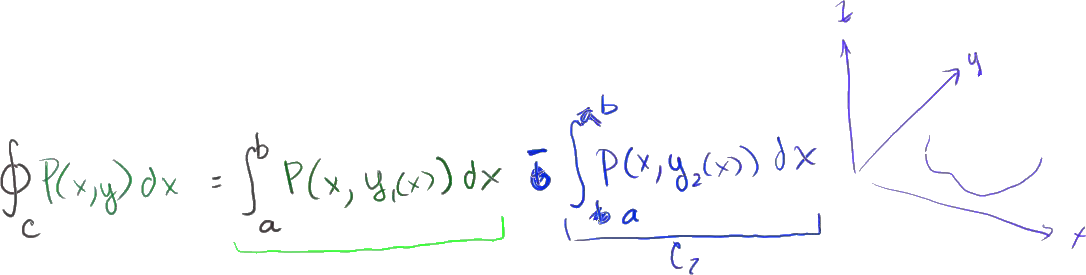 ∮_C P(x,y) dx = ∫_a^b P(x, y₁(x)) dx - ∫_a^b P(x, y₂(x)) dx
C₂
z
y
x